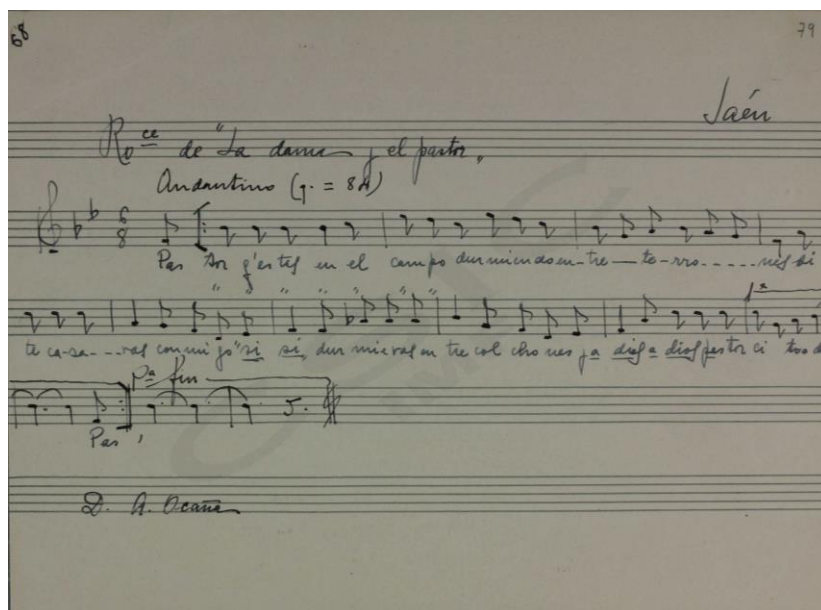 68 79
Jaén
Roce de "La dama y el pastor"
Andantino (♩. = 84)
Pas tor q'estes en el campo durmiendo en-tre-to-rro-----nes si
te ca-sa---ras conmigo "si si, durmieras en tre col cho nes ya dios a dios pastor ci to o
1ª
Pª fin
Pas
D. A. Ocaña